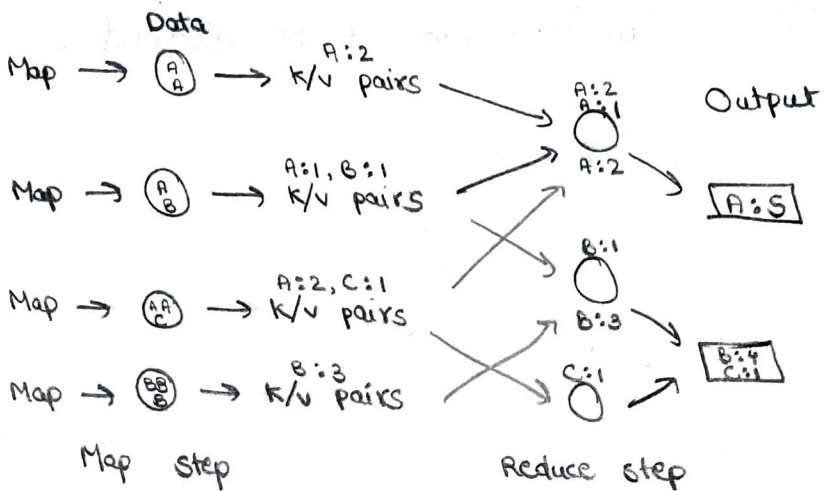 Data
Map → A A → A:2
k/v pairs
Map → A B → A:1, B:1
k/v pairs
Map → AA C → A:2, C:1
k/v pairs
Map → BB B → B:3
k/v pairs
Map step
A:2
A:1
A:2
B:1
B:3
C:1
Reduce step
Output
A:5
B:4
C:1